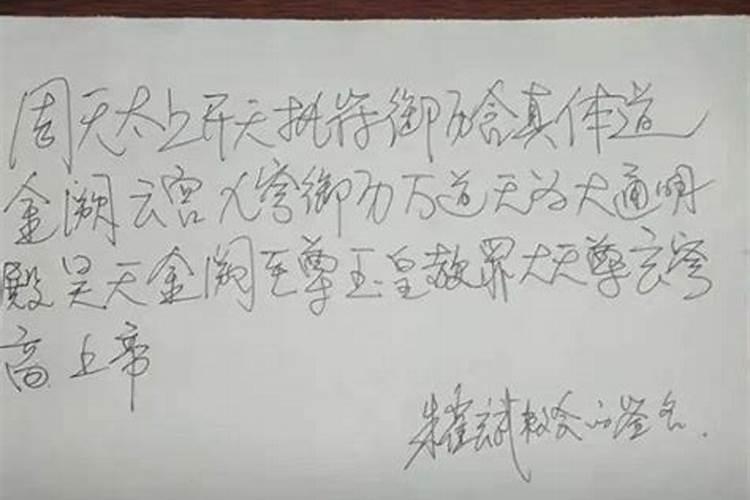 周天太上开天执符御历含真体道
金阙云宫穹御历万道无为大通明
殿昊天金阙至尊玉皇赦罪大天尊玄穹
高上帝
朱霍斌签名.